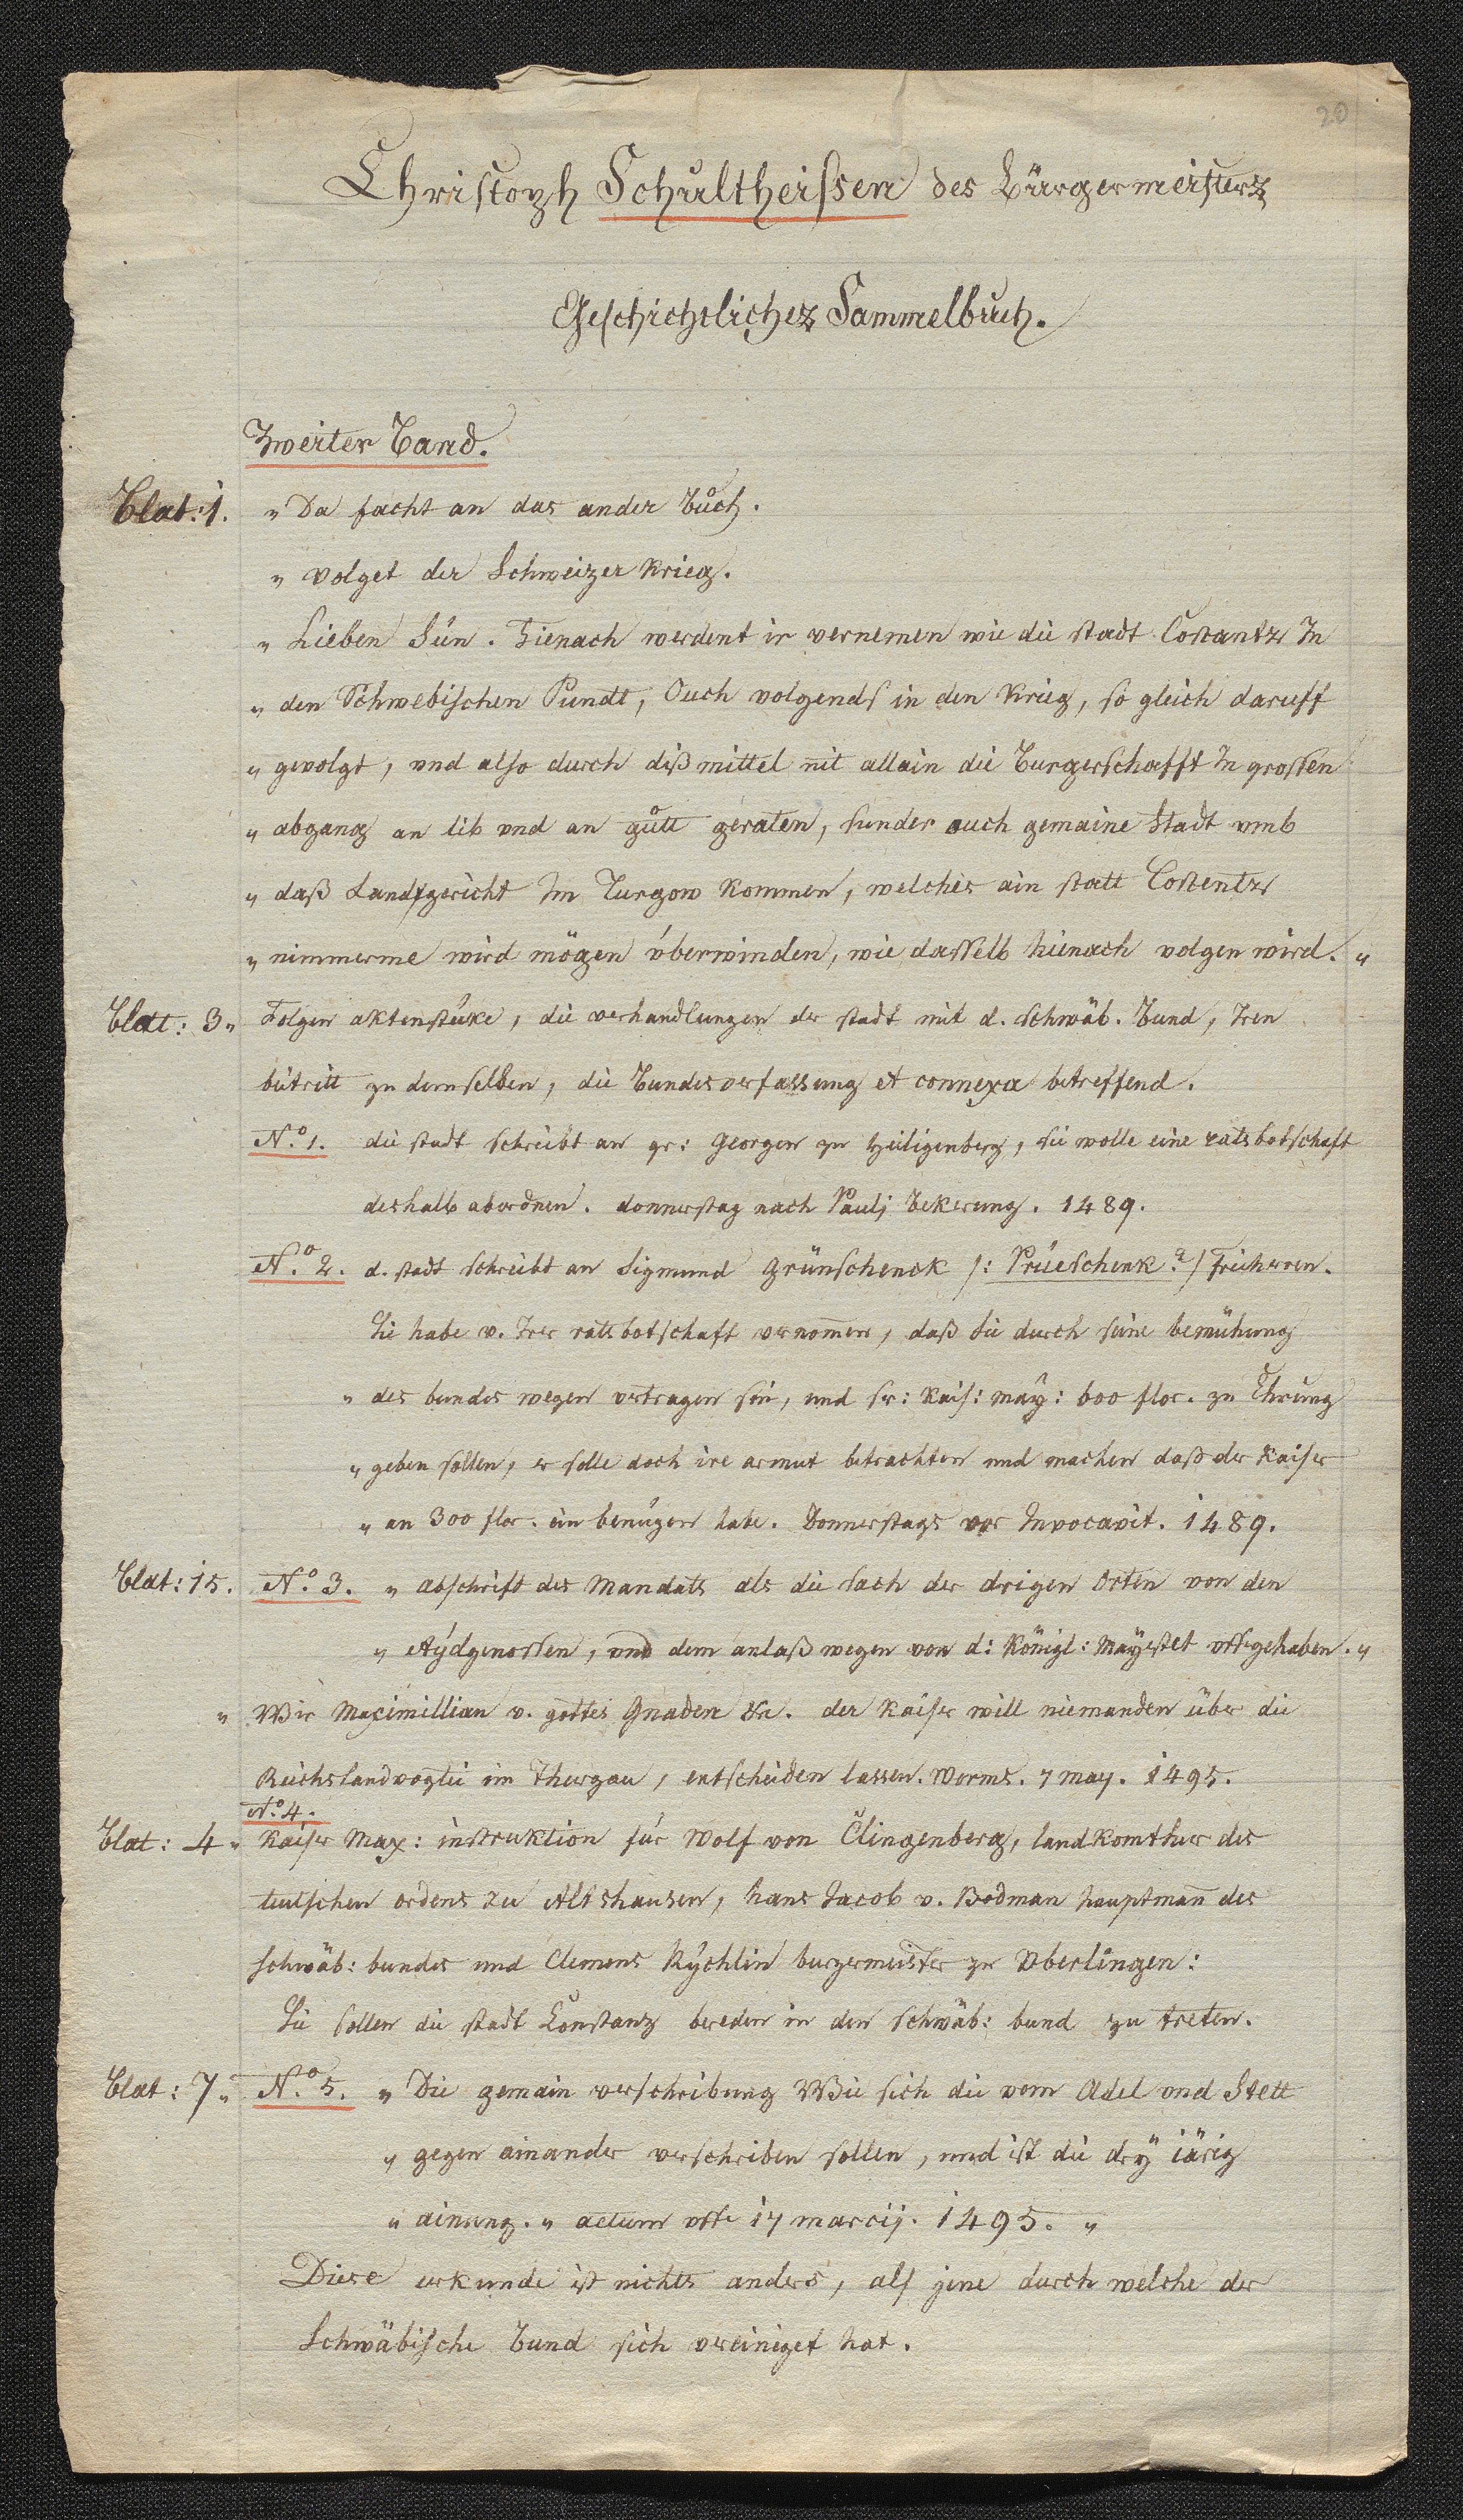 20
Christoph Schultheissen des Bürgermeisters
Geschichtliches Sammelbuch.
Zweiter Band.
Blat: 1. „ Da facht an das ander Bůch.
„ volget der Schweizer Krieg.
„ Lieben Sün. Hienach werdent ir vernemen wie die stadt Costantz In
„ den Schwebischen Pundt, Ouch volgends in den Krieg, so gleich daruff
„ gevolgt, vnd also durch diß mittel nit allain die Burgerschafft In grossen
„ abgang an lib vnd an gůtt geraten, sunder auch gemaine Stadt vmb
„ daß Landtgericht Im Turgow kommen, welches ain statt Costentz
„ nimmerme wird mögen überwinden, wie dasselb hienach volgen wird. „
Blatt: 3„ Folgen aktenstüke, die verhandlungen der stadt mit d. schwäb. Bund, Iren
beitritt zu demselben, die Bundesverfassung et connexa betreffend.
N.o 1. die stadt schreibt an gr: Georgen zu Heiligenberg, sie wolle eine ratsbotschaft
deshalb abordnen. donnerstag nach Paulj Bekerung. 1489.
N.o 2. d. stadt schreibt an Sigmund Grünschenck /: Prüeschenk? / Freiherren.
Sie habe v. Irer ratsbotschaft vernomen, daß Sie durch seine bemühung
„ des bundes wegen vertragen sei, und sr: kais: may: 600 flor. zu Ehrung
„ geben sollen, er solle doch ire armut betrachten und machen daß der Kaiser
„ an 300 flor. ein benügen habe. Donnerstags vor Invocavit. 1489.
Blat: 15. N.o 3. „ abschrift des Mandats als die sach der drigen Orten von den
„ Aydgenossen, vnd dem anlaß wegen von d: Königl: Mayestet vffgehaben. „
„ Wir Maximillian v. gottes Gnaden &c. der Kaiser will niemanden über die
Reichslandvogtei im Thurgau, entscheiden lassen. Worms. 7 may. 1495.
N.o 4.
Blat: 4„ Kaiser Max: instruktion für Wolf von Clingenberg, landkomthur des
teutschen ordens zu Altshausen, Hans Jacob v. Bodman hauptmañ des
schwäb: bundes und Clemens Rychlin burgermeister zu Vberlingen:
Sie sollen die stadt Konstanz bereden in den schwäb: bund zu treten.
Blat: 7„ N.o 5. „ Die gemain verschribung Wie sich die vom Adel vnd Stett
„ gegen ainander verschriben sollen, und ist die dry iärig
„ ainung. „ actum vff 17 marcij. 1495. „
Diese urkunde ist nichts anders, als jene durch welche der
Schwäbische Bund sich vereiniget hat.